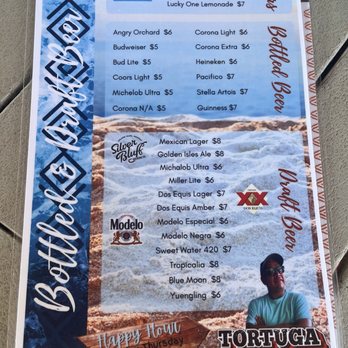 Lucky One Lemonade $7
Bottled & Draft Beer
Bottled Beer
Angry Orchard $6
Budweiser $5
Bud Lite $5
Coors Light $5
Michelob Ultra $5
Corona N/A $5
Corona Light $6
Corona Extra $6
Heineken $6
Pacifico $7
Stella Artois $7
Guinness $7
Draft Beer
Silver Bluff
Mexican Lager $8
Golden Isles Ale $8
Michalob Ultra $6
Miller Lite $6
Dos Equis Lager $7
Dos Equis Amber $7
XX
Modelo
Modelo Especial $6
Modelo Negra $6
Sweet Water 420 $7
Tropicalia $8
Blue Moon $8
Yuengling $6
Happy Howl
Thursday
TORTUGA